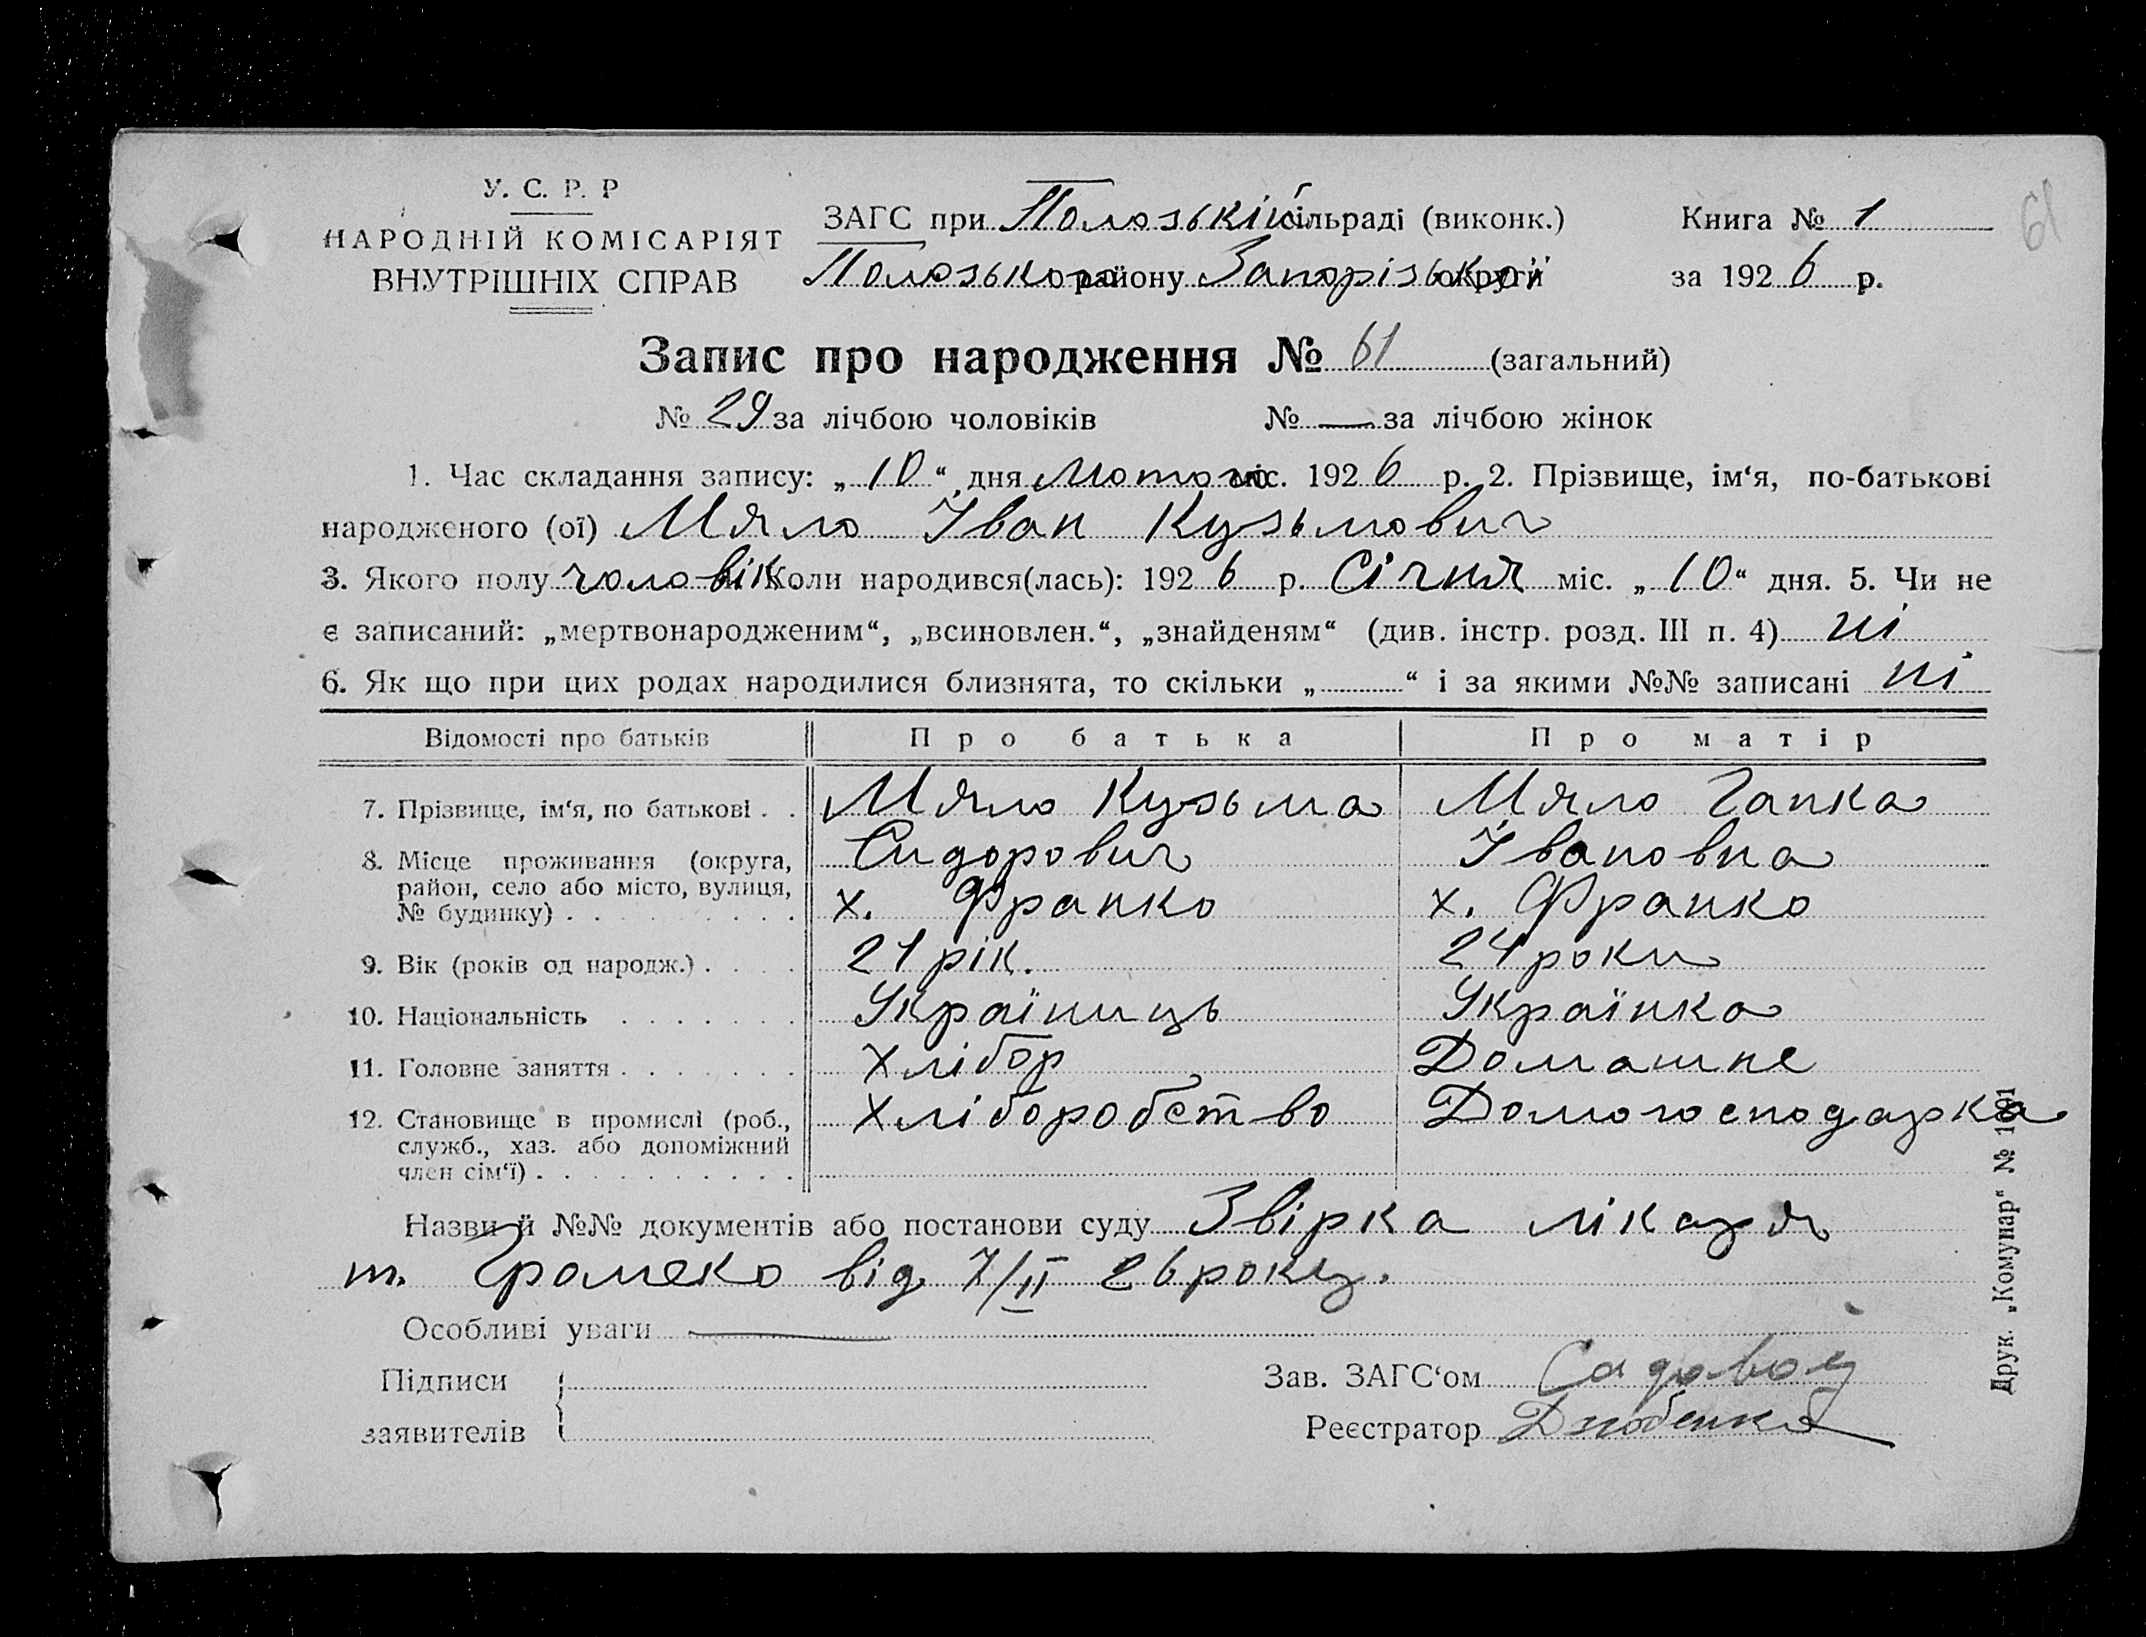 У. С. Р. Р
НАРОДНІЙ КОМІСАРІЯТ
ВНУТРІШНІХ СПРАВ
ЗАГС при Пологській сільраді (виконк.)
Пологського району Запорізької округи
Книга № 1
за 1926 р.
61
Запис про народження № 61 (загальний)
№ 29 за лічбою чоловіків № — за лічбою жінок
1. Час складання запису: „10“ дня Лютого міс. 1926 р. 2. Прізвище, ім‘я, по-батькові
народженого (ої) Мяло Іван Кузьмович
3. Якого полу чоловік Коли народився(лась): 1926 р. Січня міс. „10“ дня. 5. Чи не
є записаний: „мертвонародженим“, „всиновлен.“, „знайденям“ (див. інстр. розд. III п. 4) ні
6. Як що при цих родах народилися близнята, то скільки „ “ і за якими №№ записані ні
Відомості про батьків Про батька Про матір
7. Прізвище, ім‘я, по батькові . . Мяло Кузьма Мяло Гапка
Сидорович Івановна
8. Місце проживання (округа,
район, село або місто, вулиця,
№ будинку) . х. Франко х. Франко
9. Вік (років од народж.) . 21 рік. 24 роки
10. Національність . Україниць Українка
11. Головне заняття . Хлібор Домашне
12. Становище в промислі (роб., Хліборобство Домогосподарка
служб., хаз. або допоміжний
член сім‘ї) .
Назви й №№ документів або постанови суду Звірка лікаря
т. Грамеко від 7/II 26 року.
Особливі уваги —
Підписи
заявителів
Зав. ЗАГС‘ом Садовой
Реєстратор
Друк. „Комунар“ №